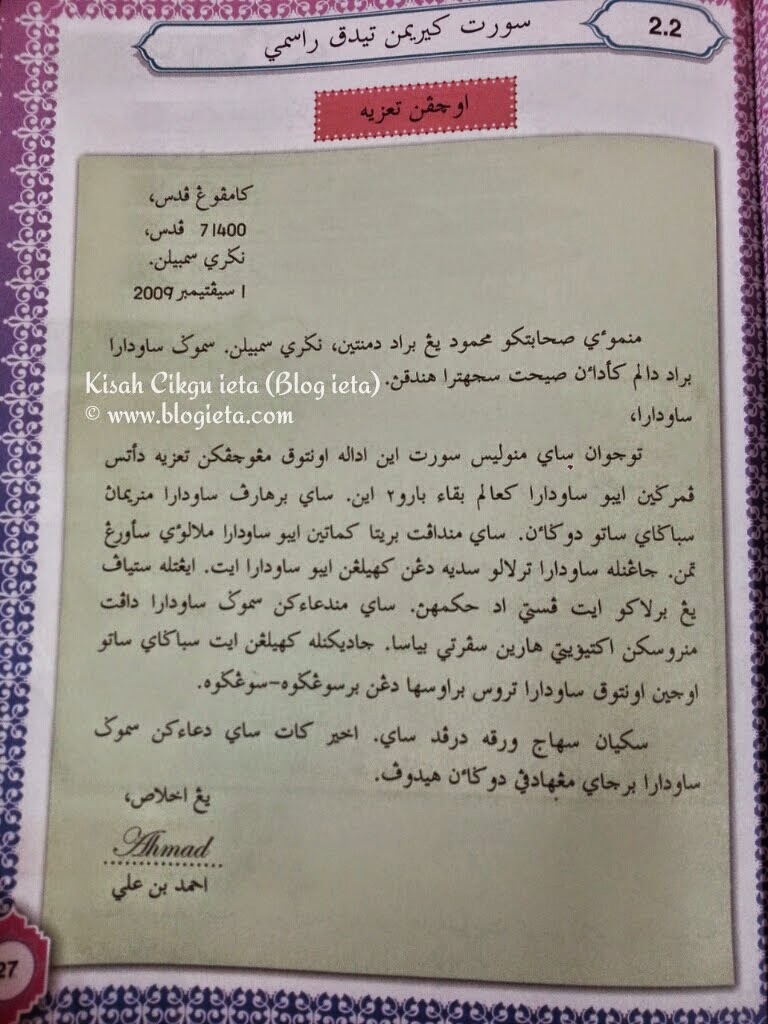 2.2
سورت کيريمن تيدق راسمي
اوچڤن تعزيه
کامڤوڠ ڤدس،
71400 ڤدس،
نݢري سمبيلن.
1 سيڤتيمبر 2009
منموءي صحابتکو محمود يڠ براد دمنتين، نݢري سمبيلن. سموݢ ساودارا
براد دالم کأداءن صيحت سجهترا هندقڽ.
Kisah Cikgu ieta (Blog ieta)
© www.blogieta.com
ساودارا،
توجوان ساي منوليس سورت اين اداله اونتوق مڠوچڤکن تعزيه دأتس
ڤمرݢين ايبو ساودارا کعالم بقاء بارو٢ اين. ساي برهارڤ ساودارا منريماڽ
سباݢاي ساتو دوݢاءن. ساي منداڤت بريتا کماتين ايبو ساودارا ملالوءي سأورڠ
تمن. جاڠنله ساودارا ترلالو سديه دڠن کهيلڠن ايبو ساودارا ايت. ايڠتله ستياڤ
يڠ برلاکو ايت ڤستي اد حکمهڽ. ساي مندعاءکن سموݢ ساودارا داڤت
منروسکن اکتيۏيتي هارين سڤرتي بياسا. جاديکنله کهيلڠن ايت سباݢاي ساتو
اوجين اونتوق ساودارا تروس براوسها دڠن برسوڠݢوه-سوڠݢوه.
سکيان سهاج ورقه درڤد ساي. اخير کات ساي دعاءکن سموݢ
ساودارا برجاي مڠهادڤي دوݢاءن هيدوڤ.
يڠ اخلاص،
Ahmad
احمد بن علي
27